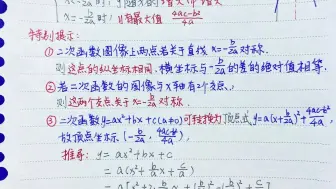 x=-b/2a时, y有最大值 4ac-b²/4a
特别提示:
①二次函数图像上两点若关于直线 x=-b/2a 对称,
则这点的纵坐标相同,横坐标与-b/2a的差的绝对值相等.
②若二次函数的图像与x轴有2个交点,
则这两个交点关于x=-b/2a对称.
③二次函数y=ax²+bx+c(a≠0)可转换为顶点式y=a(x+b/2a)²+4ac-b²/4a,
故顶点坐标(-b/2a, 4ac-b²/4a)
推导: y=ax²+bx+c
=a(x²+b/a x+c/a)